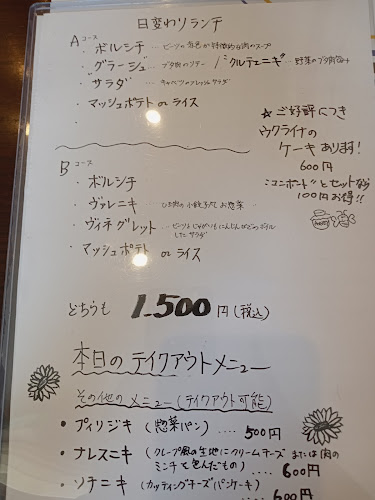 日変わりランチ
Aコース
・ボルシチ …ビーツの赤色が特徴的なお肉のスープ
・グラージュ …ブタ肉のソテー
・サラダ …キャベツのフレッシュサラダ
・マッシュポテト or ライス
☆ご好評につき
ウクライナの
ケーキあります!
600円
"コンポート"とセットなら
100円お得!!
Bコース
・ボルシチ
・ヴァレニキ
・ヴィネグレット …ビーツとじゃがいもにんじん
したサラダ
・マッシュポテト or ライス
どちらも 1,500円(税込)
本日のテイクアウトメニュー
その他のメニュー(テイクアウト可能)
・ピィリジキ(惣菜パン)....500円
・ナレスニキ(クレープ風の生地にクリームチーズまたは肉の
ミンチを包んだもの)....600円
・ソチニキ(カッティングチーズパンケーキ)
....600円